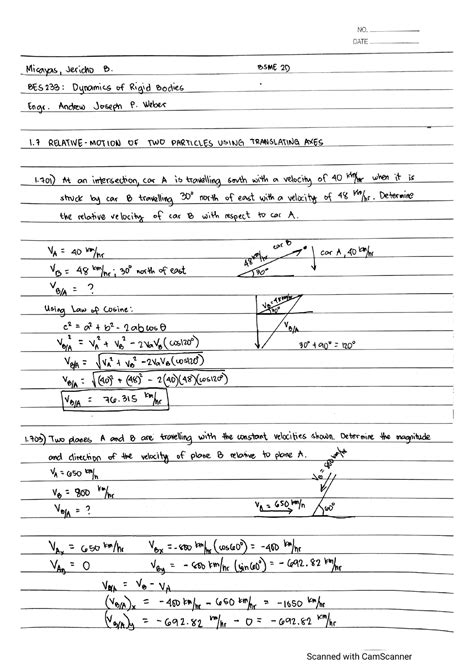 NO.
DATE
Micayas, Jericho B. BSME 2D
BES 233: Dynamics of Rigid Bodies
Engr. Andrew Joseph P. Weber
1.7 RELATIVE-MOTION OF TWO PARTICLES USING TRANSLATING AXES
1.701) At an intersection, car A is travelling south with a velocity of 40 km/hr when it is
struck by car B travelling 30° north of east with a velocity of 48 km/hr. Determine
the relative velocity of car B with respect to car A.
V_A = 40 km/hr
V_B = 48 km/hr; 30° north of east
V_B/A = ?
48 km/hr car B
30°
car A, 40 km/hr
Using Law of Cosine:
c² = a² + b² - 2ab cos θ
V_B/A² = V_A² + V_B² - 2V_AV_B (cos120°)
V_B/A = √V_A² + V_B² - 2V_AV_B (cos120°)
V_B/A = √(40)² + (48)² - 2(40)(48)(cos120°)
V_B/A = 76.315 km/hr
V_B = 48 km/hr
30°
V_B/A
30° + 90° = 120°
1.703) Two planes A and B are traveling with the constant velocities shown. Determine the magnitude
and direction of the velocity of plane B relative to plane A.
V_A = 650 km/h
V_B = 800 km/hr
V_B/A = ?
V_B = 800 km/hr
V_A = 650 km/h
60°
V_Ax = 650 km/hr V_Bx = -800 km/hr (cos60°) = -400 km/hr
= 0 V_By = -800 km/hr (sin60°) = -692.82 km/hr
V_B/A = V_B - V_A
(V_B/A)x = -400 km/hr - 650 km/hr = -1050 km/hr
(V_B/A)y = -692.82 km/hr - 0 = -692.82 km/hr
Scanned with CamScanner